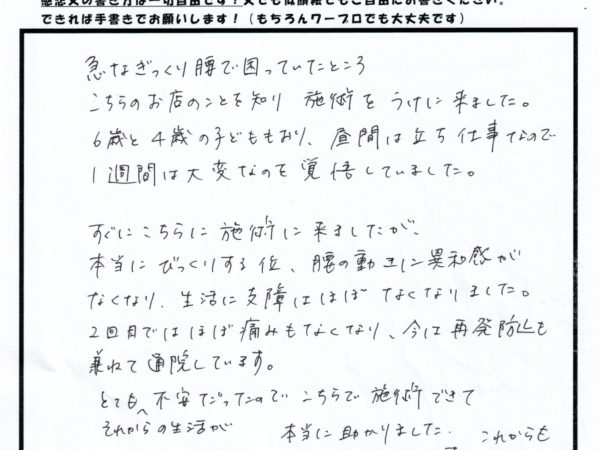 感想文の書き方は一切自由です！文でも似顔絵でもご自由にお書きください。
できれば手書きでお願いします！（もちろんワープロでも大丈夫です）
急なぎっくり腰で困っていたところ
こちらのお店のことを知り 施術を うけに来ました。
6歳と4歳の子どももおり、昼間は立ち仕事なので
1週間は大変なのを覚悟していました。
すぐにこちらに施術に来ましたが、
本当にびっくりする位、腰の動きに異和感が
なくなり、生活に支障はほぼなくなりました。
2回目ではほぼ痛みもなくなり、今は再発防止も
兼ねて通院しています。
とても 不安だったので こちらで 施術できて
それからの生活が
本当に助かりました。 これからも